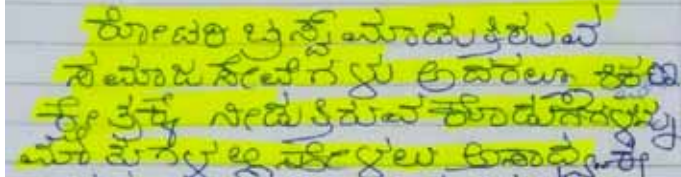 ರೋಟರಿ ಟ್ರಸ್ಟ್ ಮಾಡುತ್ತಿರುವ
ಸಮಾಜ ಸೇವೆಗಳು ಅದರಲ್ಲೂ ಶಿಕ್ಷಣ
ಕ್ಷೇತ್ರಕ್ಕೆ ನೀಡುತ್ತಿರುವ ಕೊಡುಗೆಗಳನ್ನು
ಮಾತುಗಳಲ್ಲಿ ಹೇಳಲು ಅಸಾಧ್ಯ.